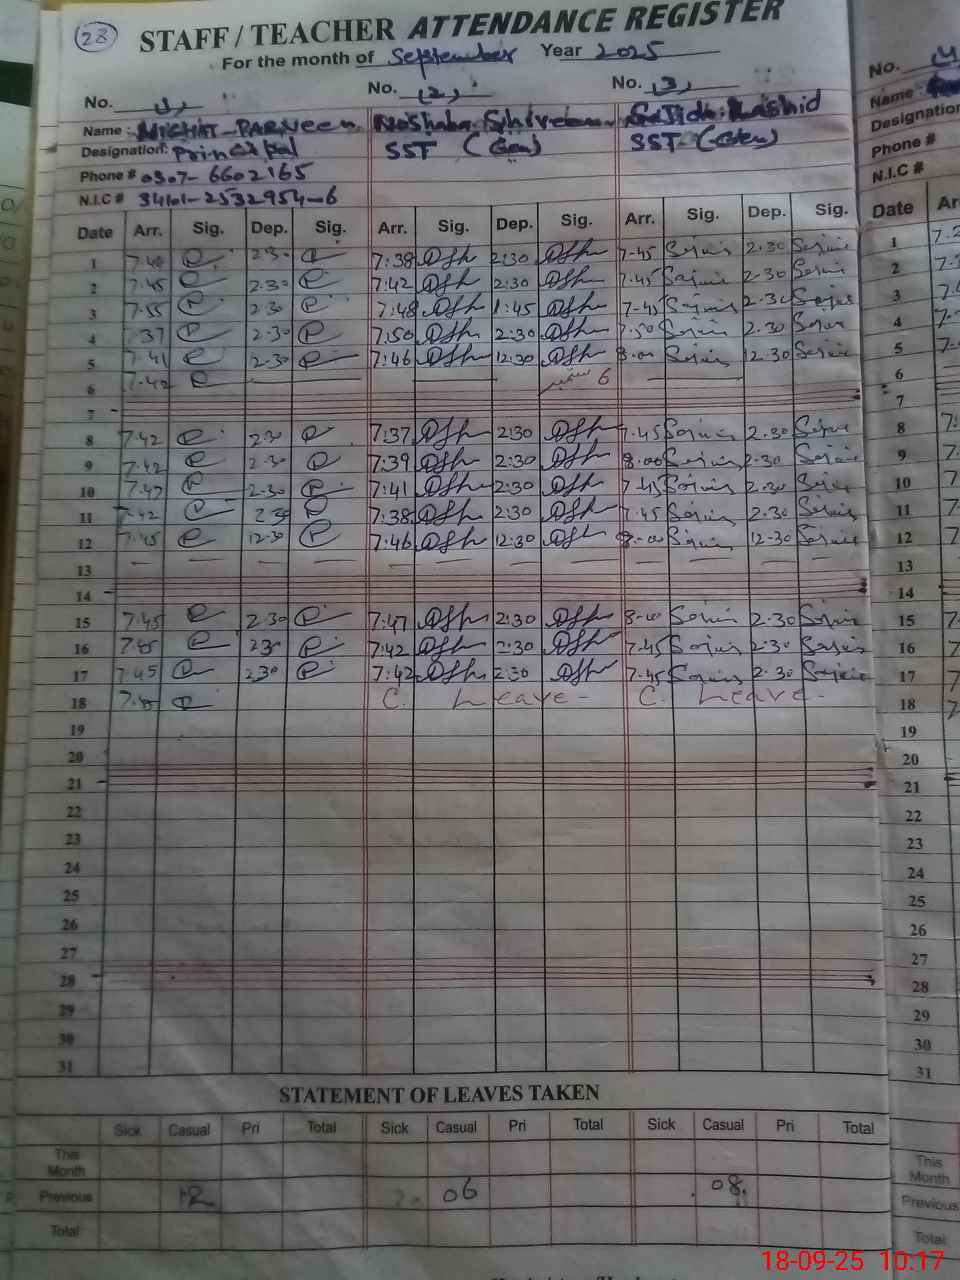 28
STAFF / TEACHER ATTENDANCE REGISTER
For the month of September Year 2025
No. 1, No. (2) No. 3,
Name :- NIGHAT - PARVEEN Noshaba Shireen Sajid Rashid
Designation: Principal SST (Gen) SST (Gen)
Phone # 0307-6602165
N.I.C # 34101-2532954-6
Date Arr. Sig. Dep. Sig. Arr. Sig. Dep. Sig. Arr. Sig. Dep. Sig.
1 7:40 2:30 7:38 2:30 7-45 2.30
2 7.45 2.30 7:42 2:30 7.45 2-30
3 7-55 2.30 7:48 1:45 7-45 2.30
4 37 2-30 7:50 2:30 7.50 2.30
5 7.41 2-30 7:46 12:30 8.00 12.30
6 7.40 6 ستمبر
7
8 7.42 2.30 7:37 2:30 7.45 2.30
9 7.42 2.30 7:39 2:30 8.00 2-30
10 7.47 2-30 7:41 2:30 7.45 2.30
11 7.42 2.30 7:38 2:30 7.45 2.30
12 7.45 12-30 7:46 12:30 8-00 12-30
13 — — — — — — — — — — — —
14
15 7.45 2.30 7:47 2:30 8-00 2.30
16 7.45 2.30 7:42 2:30 7.45 2.30
17 7.45 2.30 7:42 2:30 7.45 2.30
18 C. Leave - C. Leave -
19
20
21
22
23
24
25
26
27
28
29
30
31
STATEMENT OF LEAVES TAKEN
Sick Casual Pri Total Sick Casual Pri Total Sick Casual Pri Total
This Month
Previous 12 06 08.
Total
No. 4
Name :
Designation
Phone #
N.I.C #
Date Arr
1
2
3
4
5
6
7
8
9
10
11
12
13
14
15
16
17
18
19
20
21
22
23
24
25
26
27
28
29
30
31
This Month
Previous
Total
18-09-25 10:17